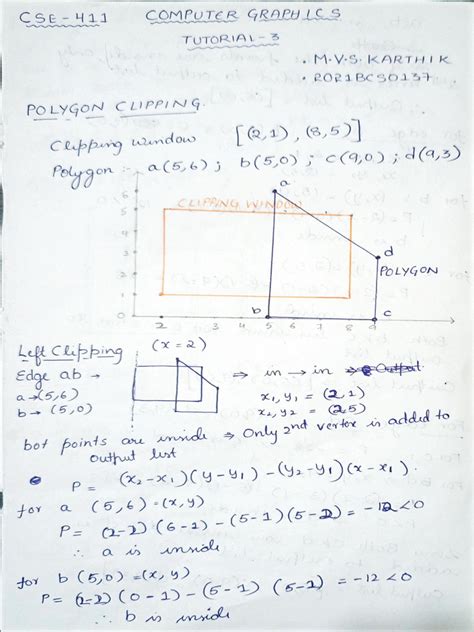 CSE-411 COMPUTER GRAPHICS
TUTORIAL-3
• M.V.S. KARTHIK
• 2021BCS0137
POLYGON CLIPPING.
Clipping window [(2,1), (8,5)]
Polygon :- a(5,6) ; b(5,0) ; c(9,0) ; d(9,3)
a
CLIPPING WINDOW
d
POLYGON
b
c
6
5
4
3
2
1
0
2 3 4 5 6 7 8 9
Left Clipping (x=2)
Edge ab →
a→(5,6)
b→(5,0)
⇒ in → in → Output
x₁,y₁ = (2,1)
x₂,y₂ = (2,5)
bot points are inside ⇒ Only 2nd vertex is added to
output list
P = (x₂-x₁)(y-y₁) - (y₂-y₁)(x-x₁).
for a (5,6)=(x,y)
P = (2-2)(6-1) - (5-1)(5-2) = -12<0
∴ a is inside
for b (5,0)=(x,y)
P = (2-2)(0-1) - (5-1)(5-2) = -12<0
∴ b is inside